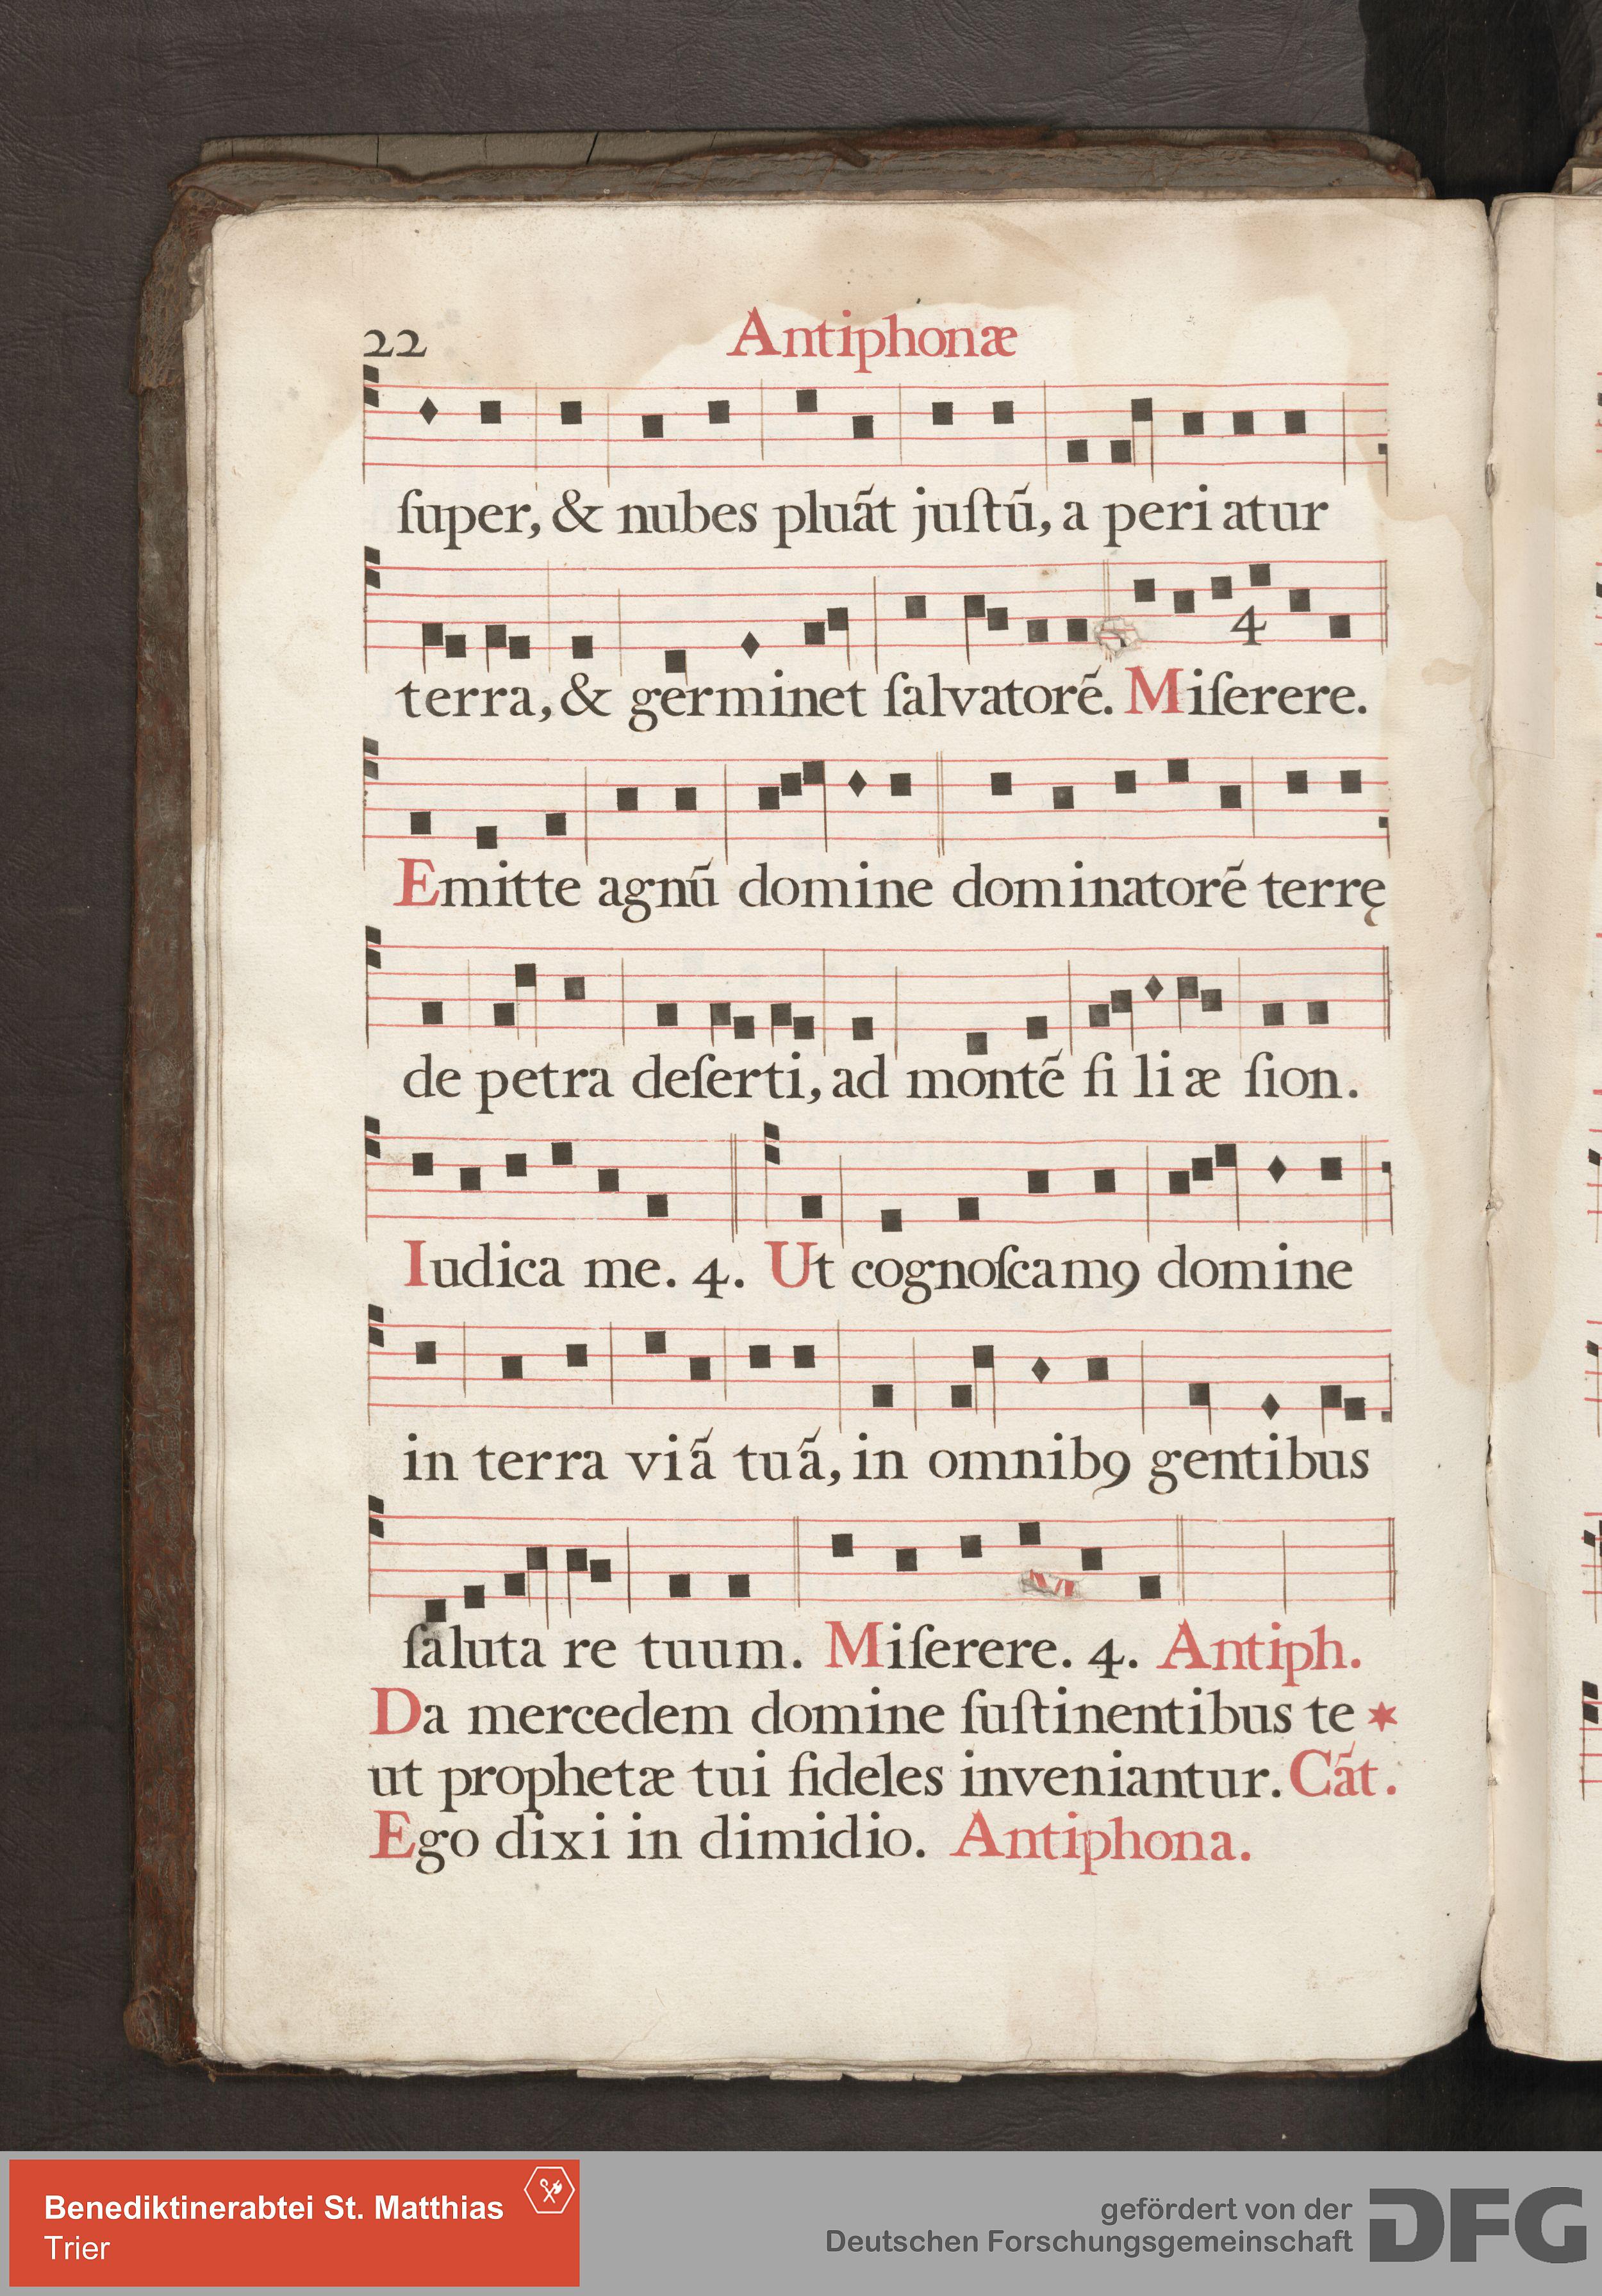 22 Antiphonæ
ſuper, & nubes pluãt juſtũ, a peri atur
4
terra, & germinet ſalvatorẽ. Miſerere.
Emitte agnũ domine dominatorẽ terrę
de petra deſerti, ad montẽ fi li æ ſion.
Iudica me. 4. Ut cognoſcamꝯ domine
in terra viã tuã, in omnibꝯ gentibus
ſaluta re tuum. Miſerere. 4. Antiph.
Da mercedem domine ſuſtinentibus te *
ut prophetæ tui fideles inveniantur. Cãt.
Ego dixi in dimidio. Antiphona.
Benediktinerabtei St. Matthias
Trier
gefördert von der
Deutschen Forschungsgemeinschaft
DFG